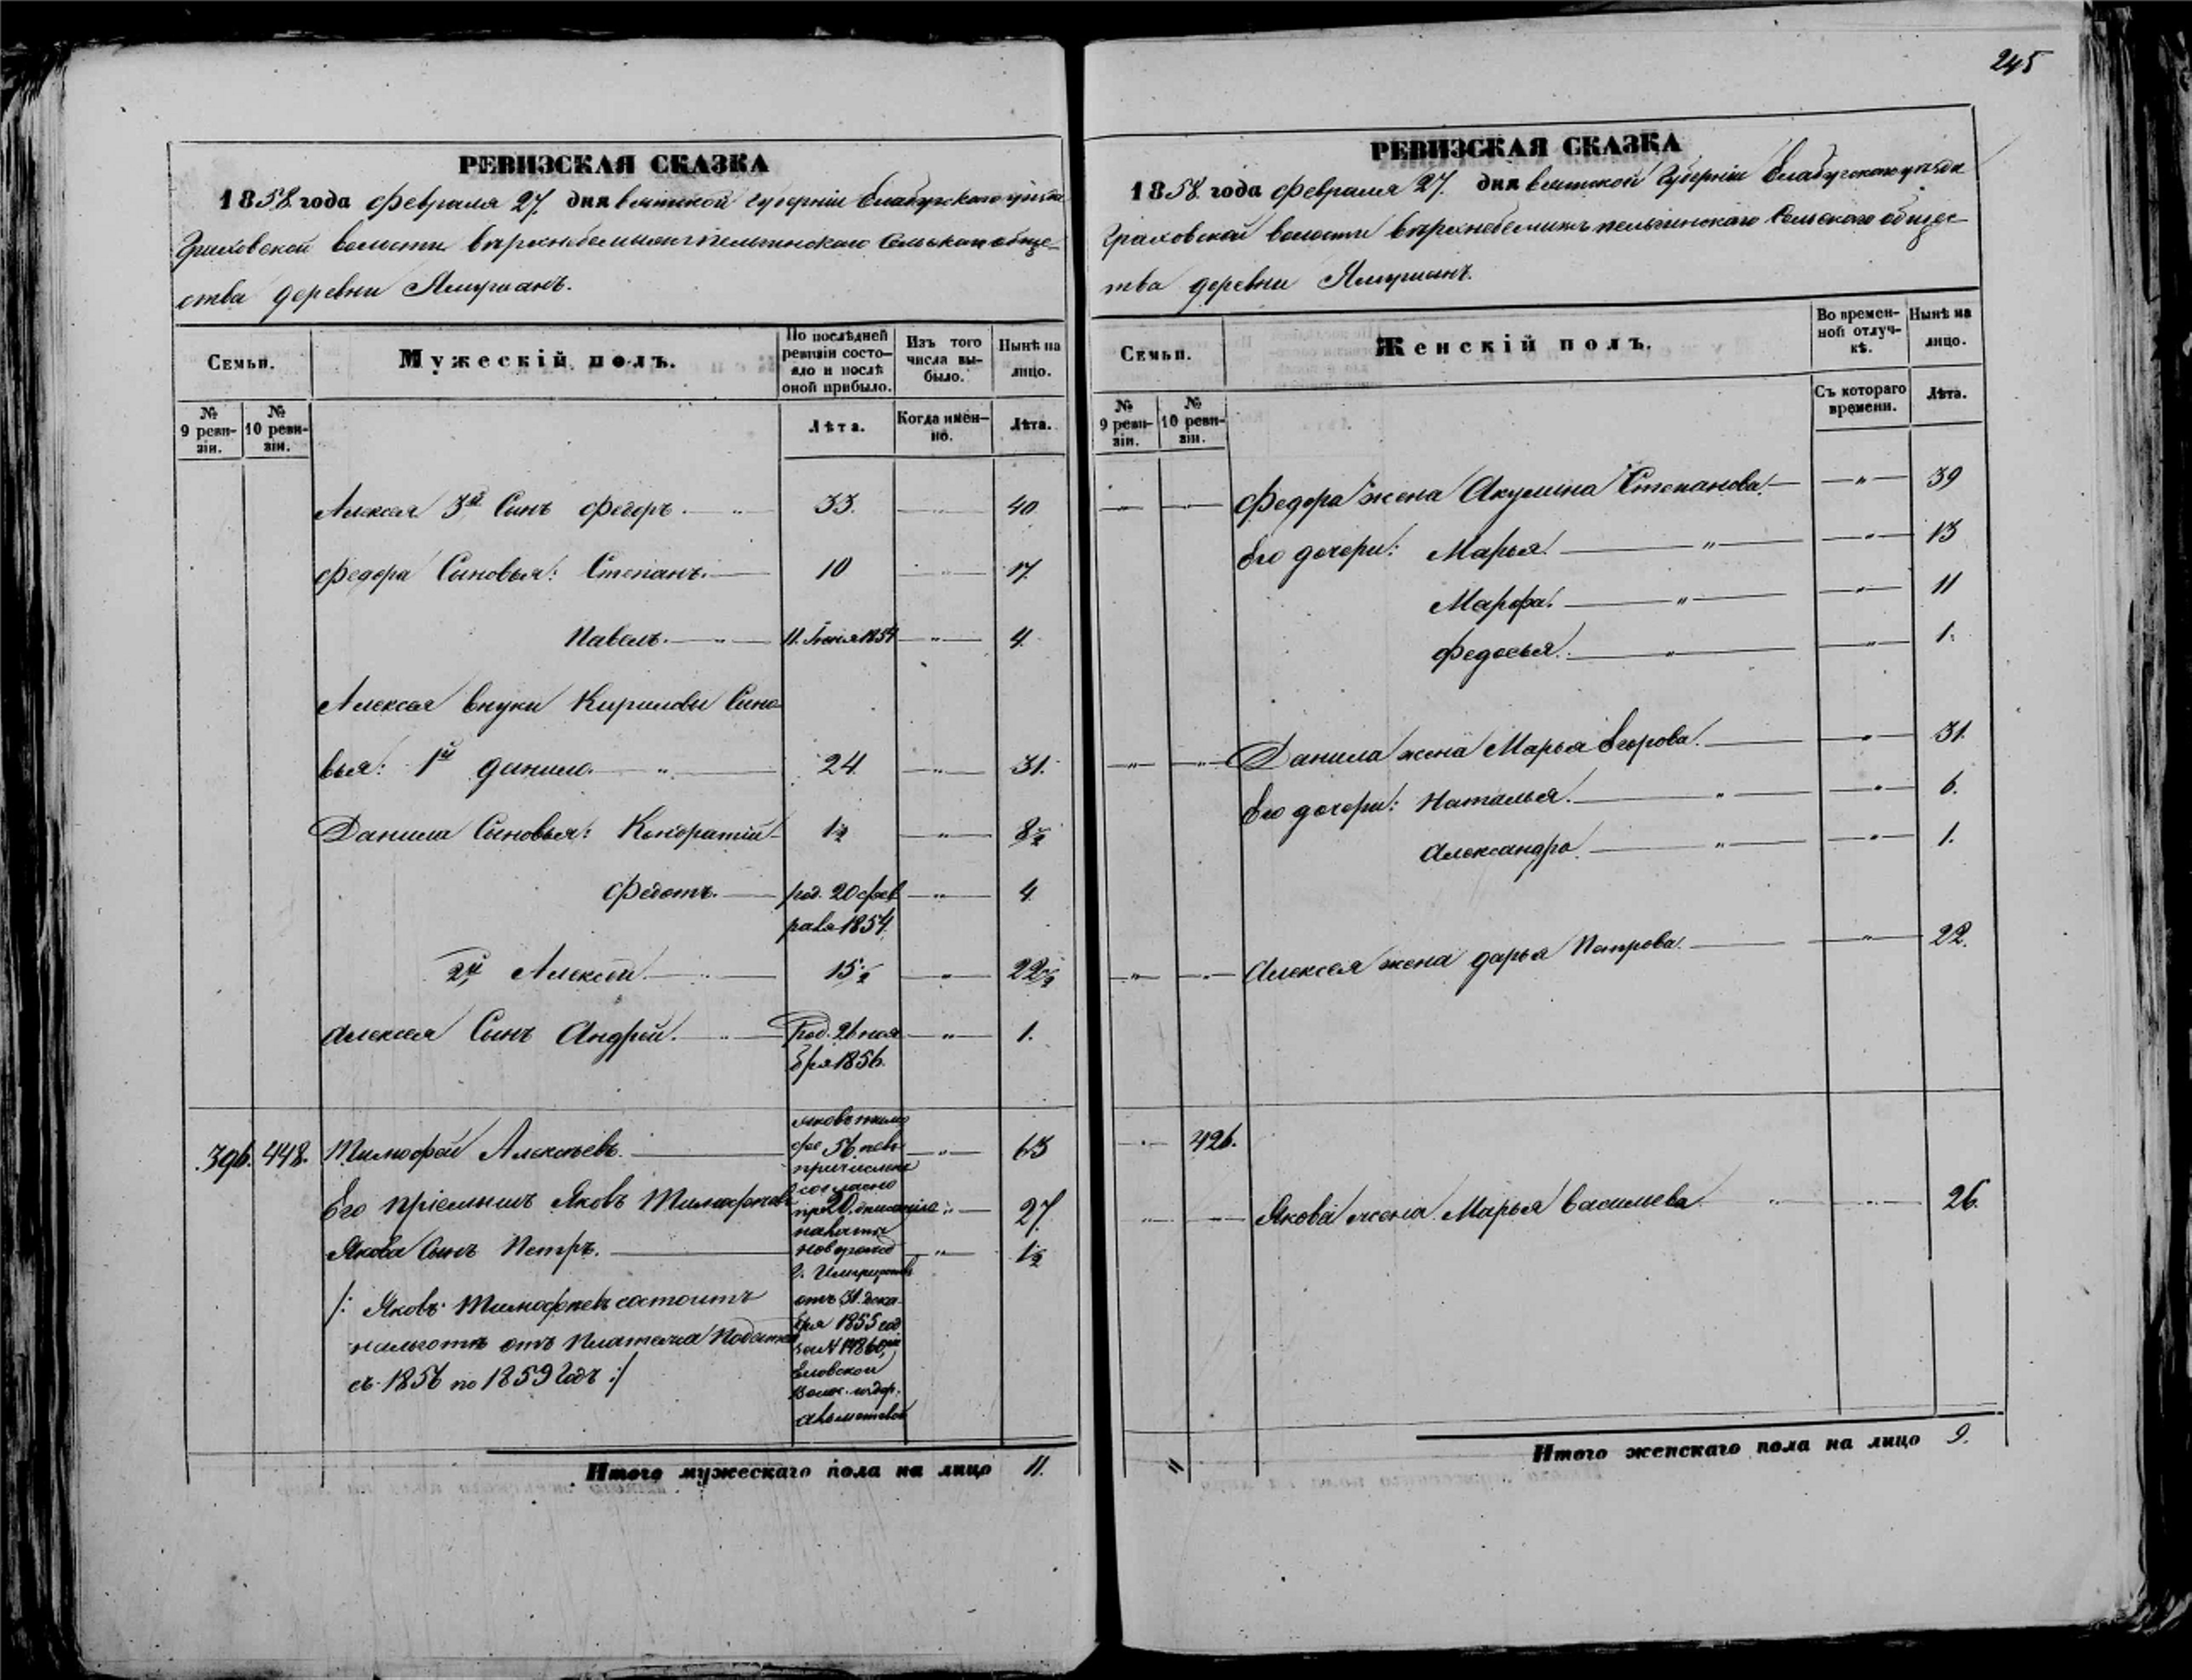 245
РЕВИЗСКАЯ СКАЗКА
1858 года февраля 27. дня вятской губерніи Елабужскаго уѣзда
Граховской волости сельскаго обще-
ства деревни
Семьи.
Мужескій полъ.
По послѣдней ревизіи состо-яло и послѣ оной прибыло.
Изъ того числа вы-было.
Нынѣ на лицо.
№ 9 реви-зіи.
№ 10 реви-зіи.
Лѣта.
Когда имен-но.
Лѣта.
Алексея 3й Сынъ Федоръ. 33. 40
Федора Сыновья: Степанъ. 10 17.
Павелъ. 11. Іюня 1854 4.
Алексея внуки Кириловы Сыно
вья: 1й Данило. 24. 31.
Данила Сыновья: Кондратій 1½ 8½
Федотъ. род. 20 фев 4
раля 1854.
2й Алексей. 15½ 22½
Алексея Сынъ Андрей. Род. 26 ноя 1.
бря 1856.
396. 448. Тимофей Алексѣевъ. 56. 63
Его пріемышъ Яковъ Тимофеевъ 20. 27.
Якова Сынъ Петръ. новорожд 1½
/: Яковъ Тимофеевъ состоитъ
на льготѣ отъ платежа Податей
съ 1856 по 1859 годъ :/
причисленъ
согласно
отъ 31. дека
бря 1855 год
Еловской
Итого мужескаго пола на лицо 11.
РЕВИЗСКАЯ СКАЗКА
1858. года февраля 27. дня вятской Губерніи Елабужскаго уѣзда
Граховской волости сельскаго общес-
тва деревни
Семьи.
Женскій полъ.
Во времен-ной отлуч-кѣ.
Нынѣ на лицо.
№ 9 реви-зіи.
№ 10 реви-зіи.
Съ котораго времени.
Лѣта.
Федора жена Акулина Степанова. 39
Его дочери: Марья. 13
Марфа. 11
Федосья. 1.
Данила жена Марья Егорова. 31.
Его дочери: Наталья. 6.
Александра. 1.
Алексея жена Дарья Петрова. 22.
426.
Якова жена Марья Васильева. 26.
Итого женскаго пола на лицо 9.